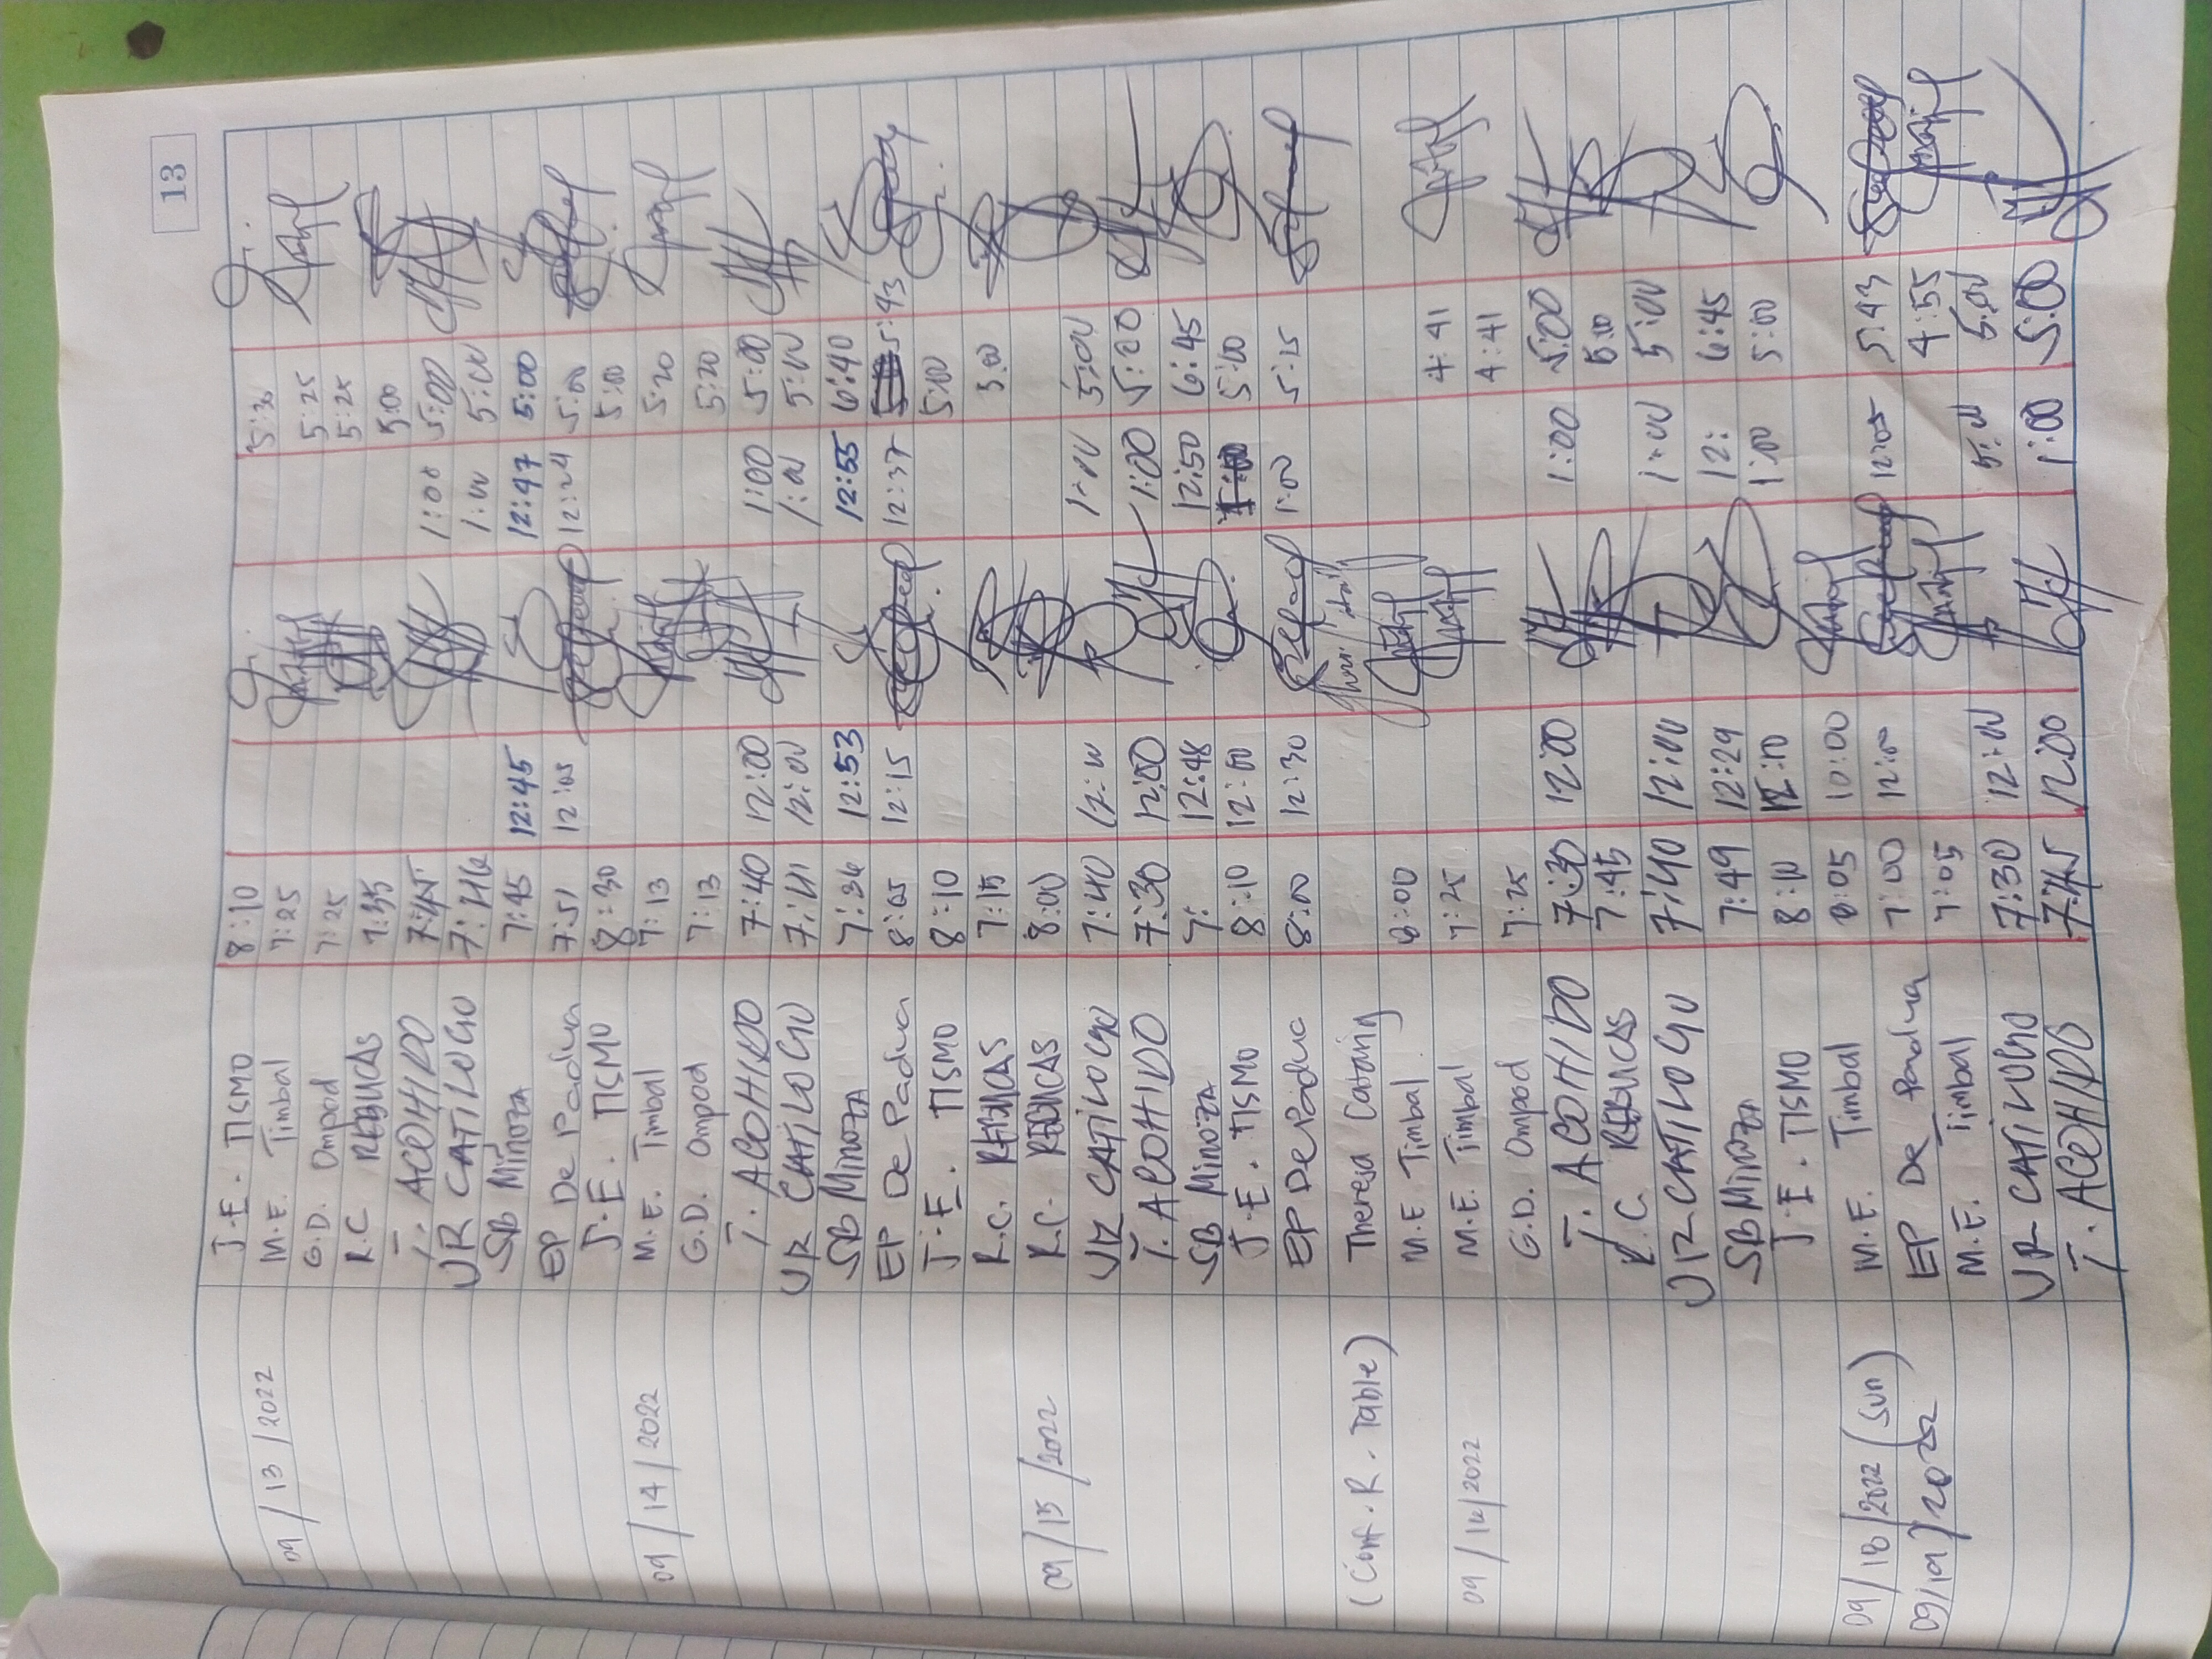 13
J.E. TISMO 8:10 5:30
09/13/2022 M.E. Timbal 7:25 5:25
G.D. Ompod 7:25 5:25
R.C REBUCAS 7:35 5:00
T. ACOHIDO 7:45 1:00 5:00
VR CATILOGO 7:46 1:00 5:00
SB Minoza 7:45 12:45 12:47 5:00
EP De Padua 7:51 12:05 12:24 5:00
J.E. TISMO 8:30 5:00
09/14/2022 M.E. Timbal 7:13 5:20
G.D. Ompod 7:13 5:20
T. ACOHIDO 7:40 12:00 1:00 5:00
VR CATILOGO 7:41 12:00 1:00 5:00
SB Minoza 7:36 12:53 12:55 6:40
EP De Padua 8:05 12:15 12:37 5:43
J.E. TISMO 8:10 5:00
R.C. REBUCAS 7:15 5:00
09/15/2022 R.C. REBUCAS 8:00
VR CATILOGO 7:40 12:00 1:00 5:00
T. ACOHIDO 7:30 12:00 1:00 5:20
SB Minoza 7: 12:48 12:50 6:45
J.E. TISMO 8:10 12:00 5:00
EP De Padua 8:00 12:30 1:00 5:25
(Conf. R. Table) Theresa Catoring
M.E. Timbal 8:00 4:41
09/16/2022 M.E. Timbal 7:25 4:41
G.D. Ompod 7:25
T. ACOHIDO 7:30 12:00 1:00 5:00
R.C. REBUCAS 7:45 5:10
VR CATILOGO 7:40 12:00 1:00 5:00
SB Minoza 7:49 12:29 12: 6:45
J.E. TISMO 8:10 12:10 1:00 5:00
09/18/2022 (Sun) M.E. Timbal 8:05 10:00
09/19/2022 EP De Padua 7:00 12:00 12:05 5:43
M.E. Timbal 7:05 4:55
VR CATILOGO 7:30 12:00 5:00 5:00
T. ACOHIDO 7:45 12:00 1:00 5:00